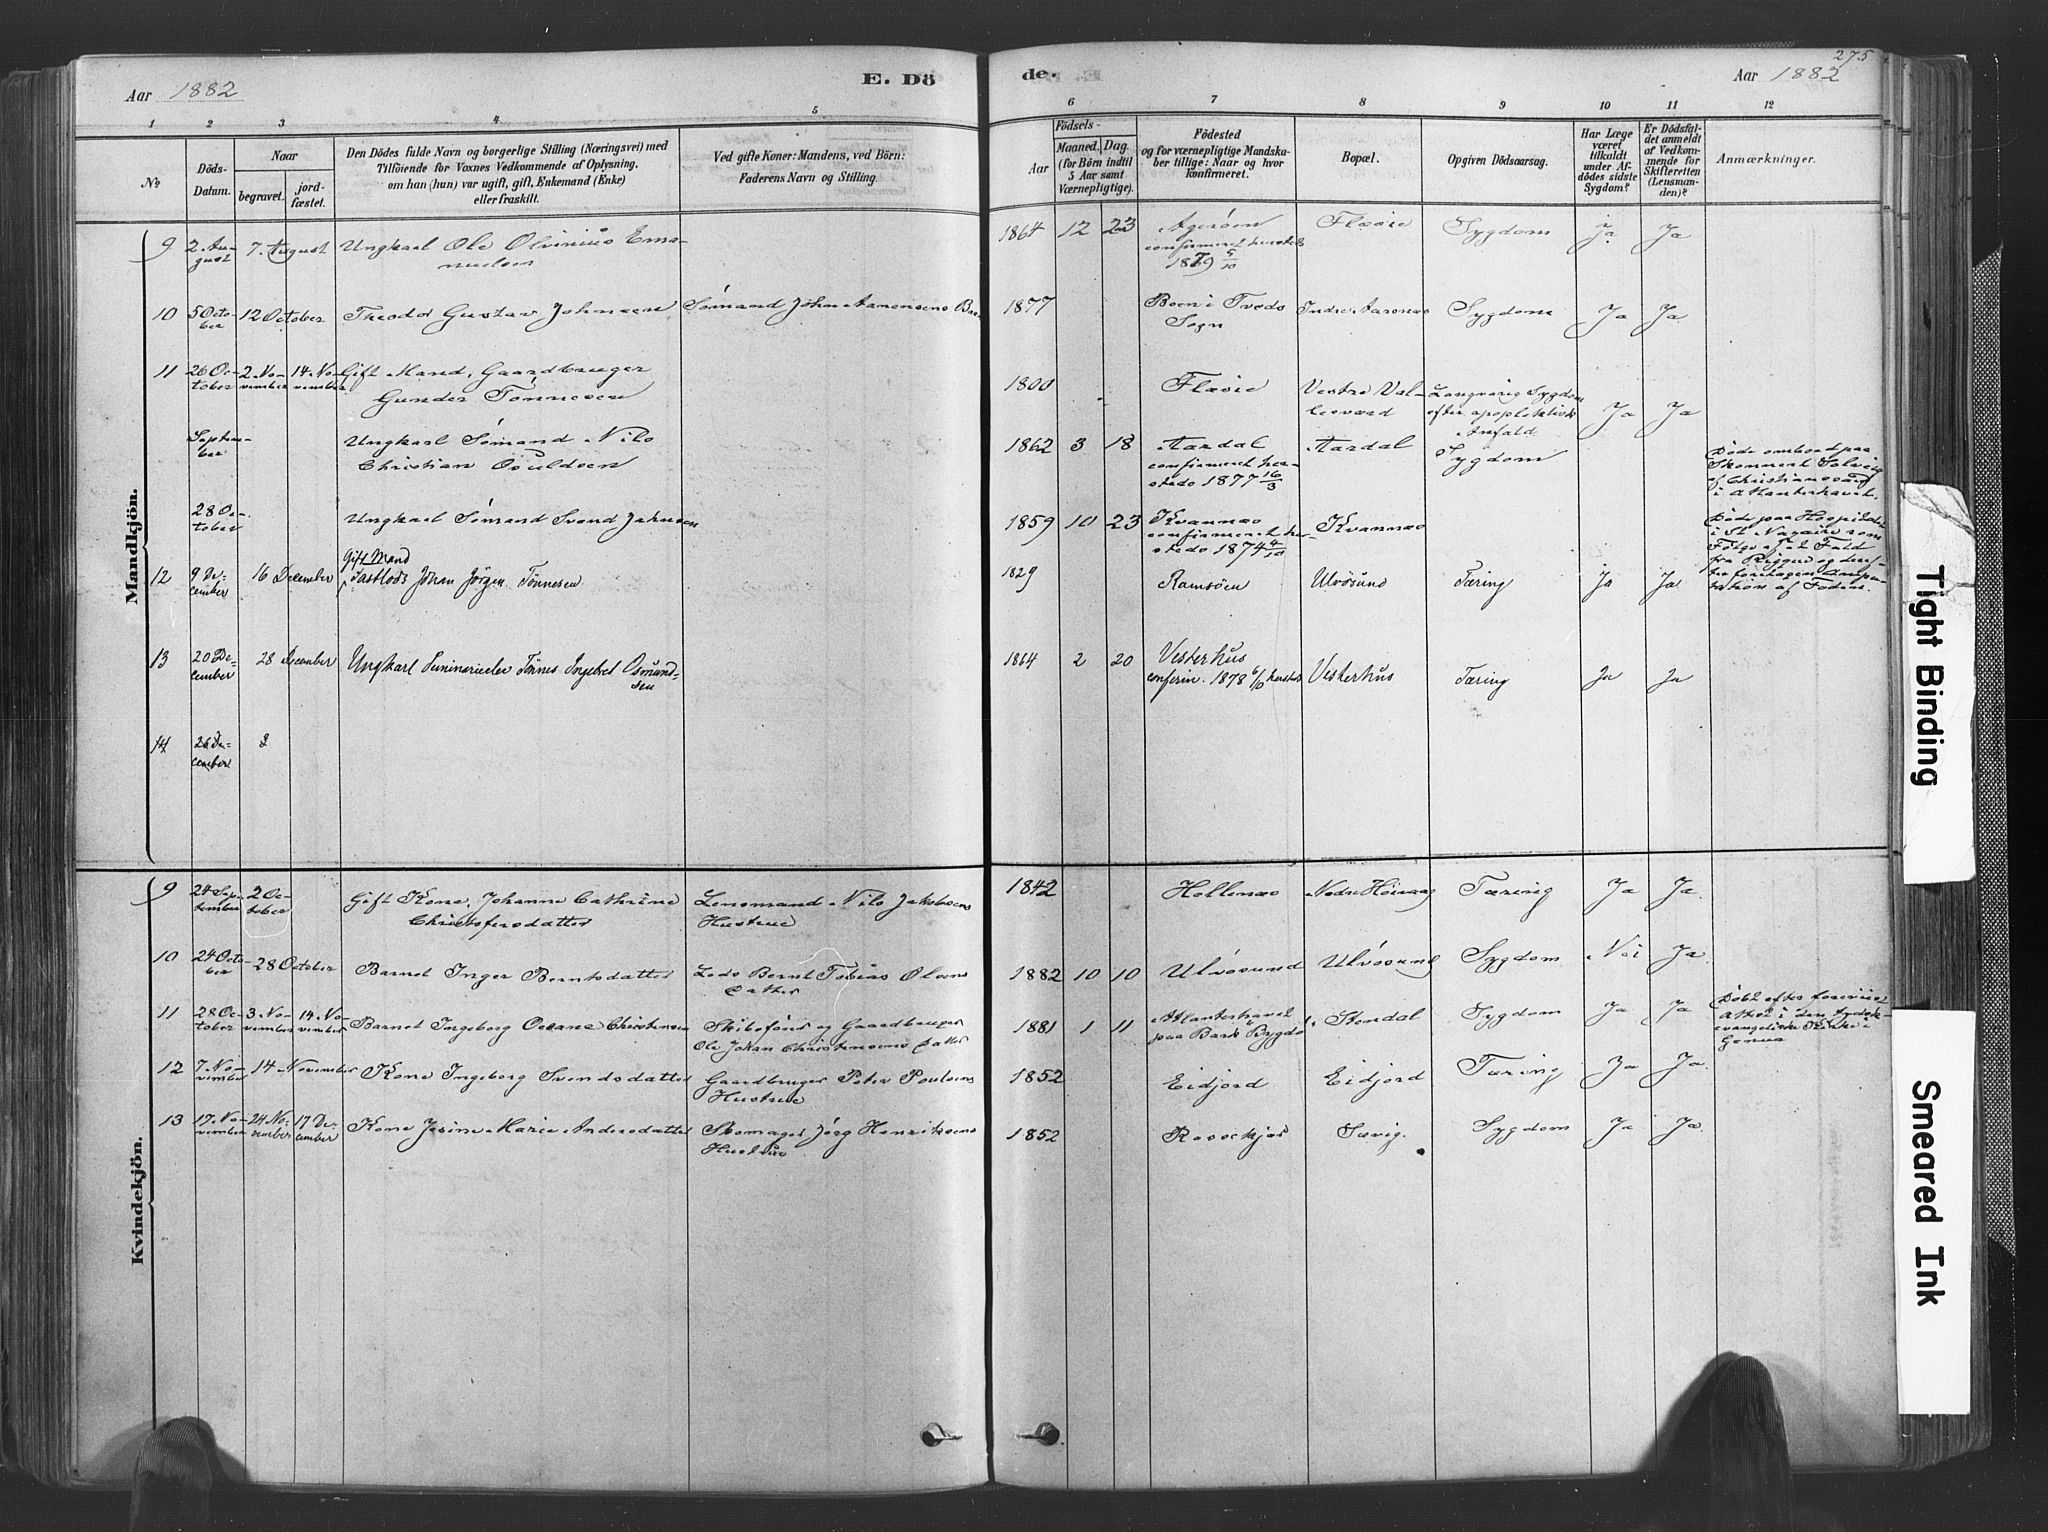 275
Aar 1882
E. Dö
de.
Aar 1882
1 2 3 4 5 6 7 8 9 10 11 12
No
Döds-
Datum.
Naar
begravet.
jord-
fæstet.
Den Dödes fulde Navn og borgerlige Stilling (Næringsvei) med
Tilföiende for Voxnes Vedkommende af Oplysning,
om han (hun) var ugift, gift, Enkemand (Enke)
eller fraskilt.
Ved gifte Koner: Mandens, ved Börn:
Faderens Navn og Stilling.
Födsels-
Aar
Maaned. Dag.
(for Börn indtil
5 Aar samt
Værnepligtige).
Födested
og for værnepligtige Mandska-
ber tillige: Naar og hvor
konfirmeret.
Bopæl.
Opgiven Dödsaarsag.
Har Læge
været
tilkaldt
under Af-
dödes sidste
Sygdom?
Er Dödsfal-
det anmeldt
af Vedkom-
mende for
Skifteretten
(Lensman-
den)?
Anmærkninger.
Mandkjön.
9 2 Au-
gust 7. August Ungkarl Ole Olvinius Ema-
nuelsen 1864 12 23 Agerøen
confirmeret hersteds
1879 5/10 Flæsie Sygdom Ja Ja
10 5 Octo-
ber 12 October Theodor Gustav Johnsen Sømand John Aanensens Barn 1877 Boen i Tveds
Sogn Indre Aaronæs Sygdom Ja Ja
11 26 Oc-
tober 2. No-
vember 14. No-
vember Gift Mand, Gaardbruger
Gunder Tønnesen 1800 Flæsie Vestre Val-
lesværd Langvarig Sygdom
efter apoplektisk
Anfald Ja Ja
Septem-
ber Ungkarl Sømand Nils
Christian Osuldsen 1862 3 18 Aardal
confirmeret her-
steds 1877 16/3 Aardal Sygdom Døde ombord paa
Skonnert Solveig
af Christianssand
i Atlanterhavet.
28 Oc-
tober Ungkarl Sømand Svend Johnsen 1859 10 23 Kvannæs
confirmeret her-
steds 1874 4/10 Kvannæs Døde paa Hospitalet
i St Nazaire som
Følge af et Fald
fra Riggen og der-
efter foretagen Ampu-
tation af Foden.
12 9 De-
cember 16 December Gift Mand
Fastlods Johan Jörgen Tönnesen 1829 Ramsöen Ulvösund Tæring Ja Ja
13 20 De-
cember 28 December Ungkarl Seminarieelev Tönnes Ingebret Osmund-
sen 1864 2 20 Vesterhus
confirm. 1878 6/10 hersteds Vesterhus Tæring Ja Ja
14 26 De-
cember 2
Kvindekjön.
9 24 Sep-
tember 2 Oc-
tober Gift Kone, Johanne Cathrine
Christofersdatter Lensmand Nils Jakobsens
Hustrue 1842 Hollenæs Nedre Høivaag Tæring Ja Ja
10 24 Octo-
ber 28 October Barnet Inger Berntsdatter Lods Bernt Tobias Olsens
Datter 1882 10 10 Ulvøsund Ulvøsund Sygdom Nei Ja
11 28 Oc-
tober 3. No-
vember 14. No-
vember Barnet Ingeborg Oceane Christensen Skibsfører og Gaardbruger
Ole Johan Christensens Datter 1881 1 11 Atlanterhavet
paa Bark Bygdø Stendal Sygdom Ja Ja Døbt efter forevist
Attest i den tydsk
evangeliske Kirke i
Genua
12 7. No-
vember 14. November Kone Ingeborg Svendsdatter Gaardbruger Peter Poulsens
Hustrue 1852 Eidjord Eidjord Tæring Ja Ja
13 17. No-
vember 24 No-
vember 17 De-
cember Kone Jesine Marie Andersdatter Skomager Jørg Henriksens
Hustrue 1852 Roseckjær Sævig. Sygdom Ja Ja
Tight Binding
Smeared Ink